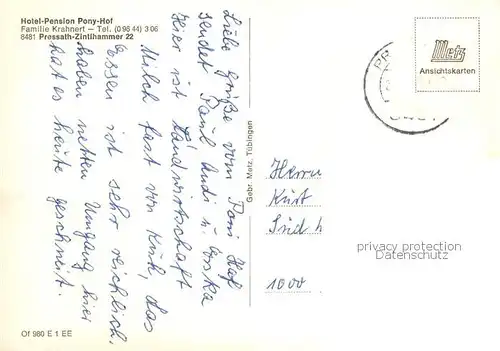 Hotel-Pension Pony-Hof
Familie Krahnert – Tel. (0 96 44) 3 06
8481 Pressath-Zintlhammer 22
Liebe Grüße vom Poni Hof
sendet Paul Andi u. Erika
Hier ist Landwirtschaft
Milch fast von Kuh, das
Essen ist sehr reichlich,
haben netten Umgang hier
hat es heute geschneit.
Gebr. Metz, Tübingen
Metz
Ansichtskarten
PR
Herrn
Kurt
Süd
1000
privacy protection
Datenschutz
Of 980 E 1 EE